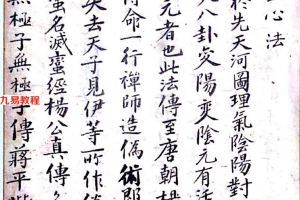 心法
於先天河圖理氣陰陽對
八卦爻陽變陰元有活
元者也此法傳至唐朝楊
得命一行禪師造僞術郎
失去天子見伊等一所作
蛮名滅蠻經楊公真傳
無極子無極子傳蔣平階
九易教程
www